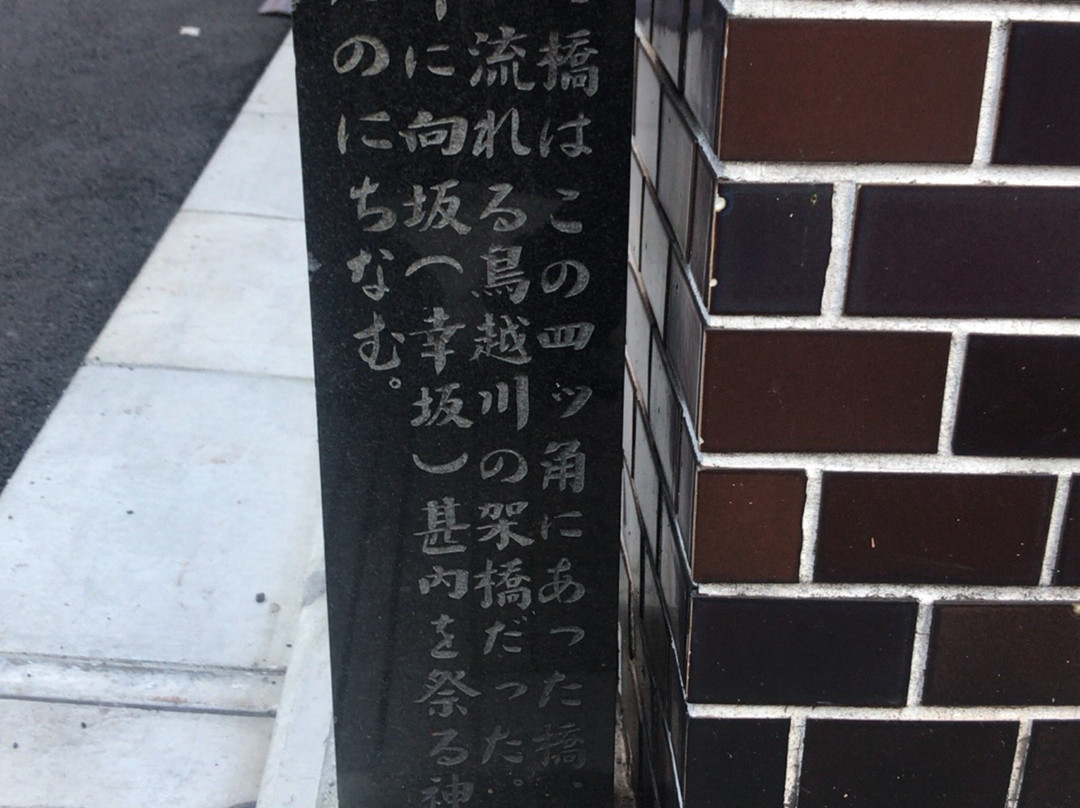 橋はこの四ツ角にあった橋.
流れる鳥越川の架橋だった。
に向坂(幸坂)甚内を祭る神
のにちなむ。